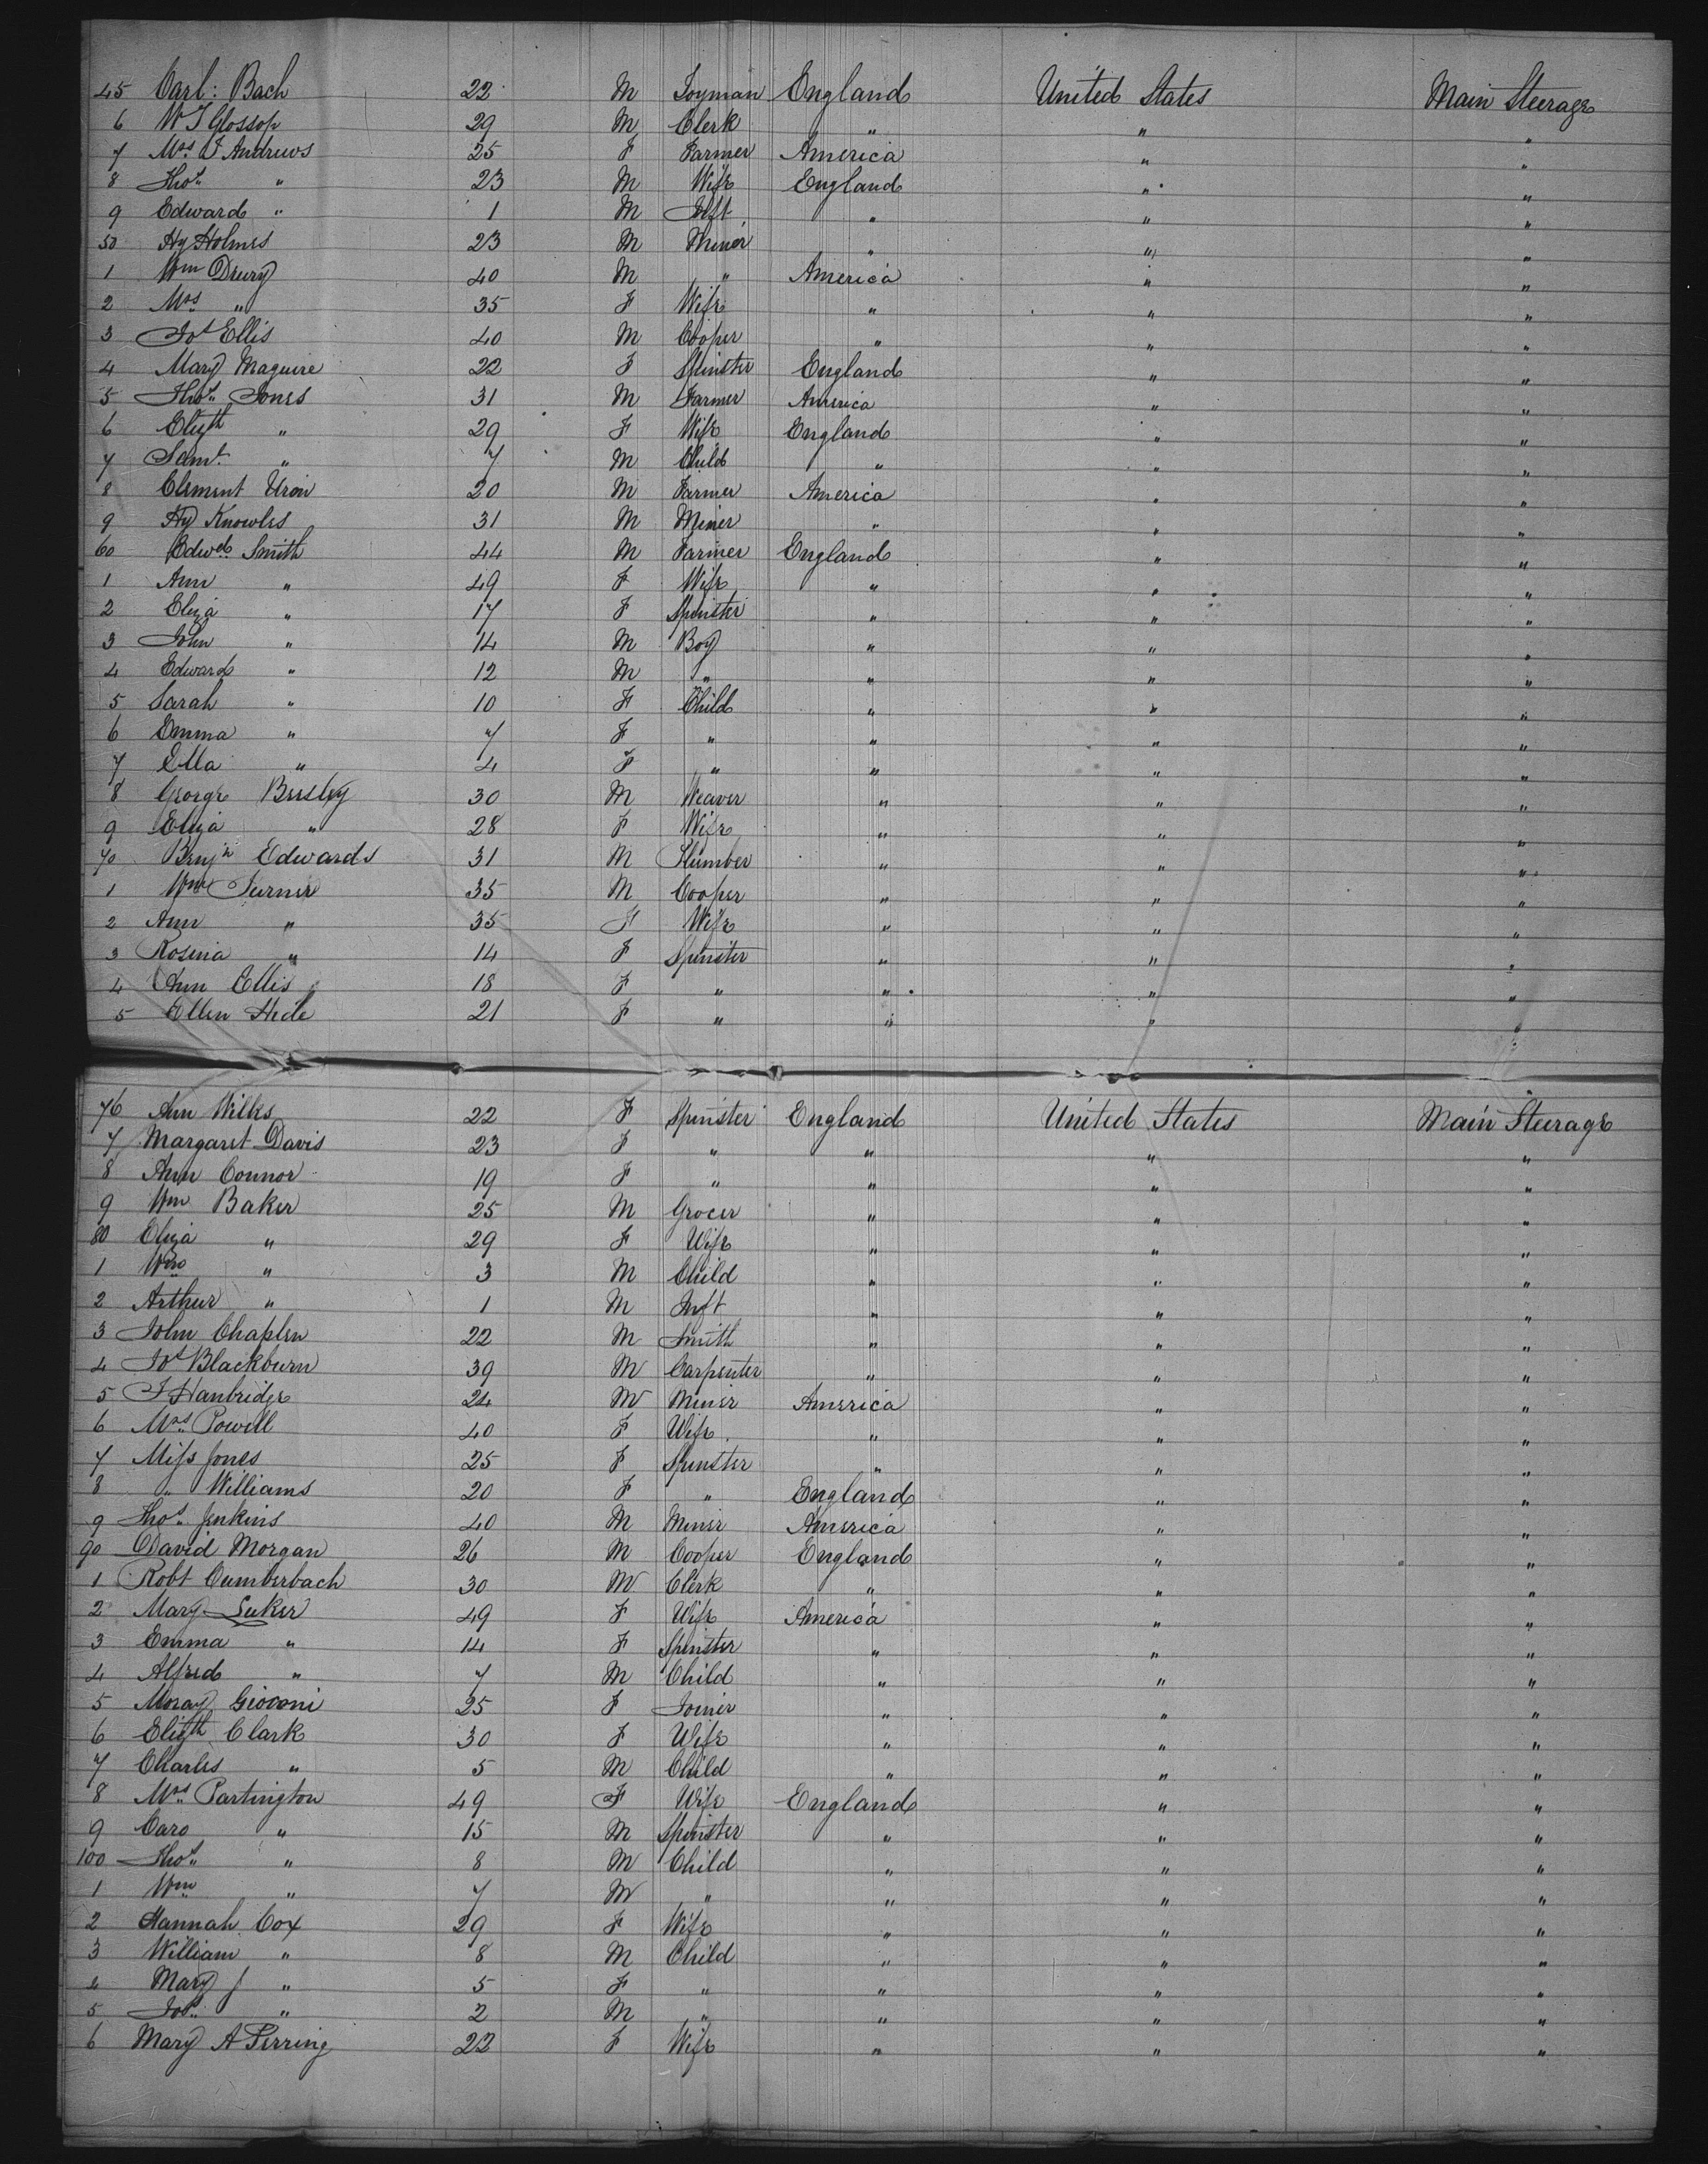 45 Carl: Bach 22 M Toyman England United States Main Steerage
6 W J Glossop 29 M Clerk " " "
7 Mrs J Andrews 25 F Farmer America " "
8 Thos " 23 M Wife England " "
9 Edward " 1 M Inft " " "
50 Hy Holmes 23 M Miner " " "
1 Wm Drury 40 M " America " "
2 Mrs " 35 F Wife " " "
3 Jos Ellis 40 M Cooper " " "
4 Mary Maguire 22 F Spinster England " "
5 Thos Jones 31 M Farmer America " "
6 Elizth " 29 F Wife England " "
7 Saml " 7 M Child " " "
8 Clement Uron 20 M Farmer America " "
9 Hy Knowles 31 M Miner " " "
60 Edwd Smith 44 M Farmer England " "
1 Ann " 49 F Wife " " "
2 Eliza " 17 F Spinster " " "
3 John " 14 M Boy " " "
4 Edward " 12 M " " " "
5 Sarah " 10 F Child " " "
6 Emma " 7 F " " " "
7 Ella " 4 F " " " "
8 George Bursley 30 M Weaver " " "
9 Eliza " 28 F Wife " " "
70 Benjn Edwards 31 M Plumber " " "
1 Wm Turner 35 M Cooper " " "
2 Ann " 35 F Wife " " "
3 Rosina " 14 F Spinster " " "
4 Ann Ellis 18 F " " " "
5 Ellen Hide 21 F " " " "
76 Ann Wilks 22 F Spinster England United States Main Steerage
7 Margaret Davis 23 F " " " "
8 Ann Connor 19 F " " " "
9 Wm Baker 25 M Grocer " " "
80 Eliza " 29 F Wife " " "
1 Wm " 3 M Child " " "
2 Arthur " 1 M Inft " " "
3 John Chaplen 22 M Smith " " "
4 Jos Blackburn 39 M Carpenter " " "
5 J Hanbridge 24 M Miner America " "
6 Mrs Powell 40 F Wife " " "
7 Miss Jones 25 F Spinster " " "
8 " Williams 20 F " England " "
9 Thos Jenkins 40 M Miner America " "
90 David Morgan 26 M Cooper England " "
1 Robt Cumberbach 30 M Clerk " " "
2 Mary Suker 49 F Wife America " "
3 Emma " 14 F Spinster " " "
4 Alfred " 7 M Child " " "
5 Moray Giovoni 25 F Joiner " " "
6 Elizth Clark 30 F Wife " " "
7 Charles " 5 M Child " " "
8 Mrs Partington 49 F Wife England " "
9 Caro " 15 M Spinster " " "
100 Thos " 8 M Child " " "
1 Wm " 7 M " " " "
2 Hannah Cox 29 F Wife " " "
3 William " 8 M Child " " "
4 Mary J " 5 F " " " "
5 Jos " 2 M " " " "
6 Mary A Perring 22 F Wife " " "